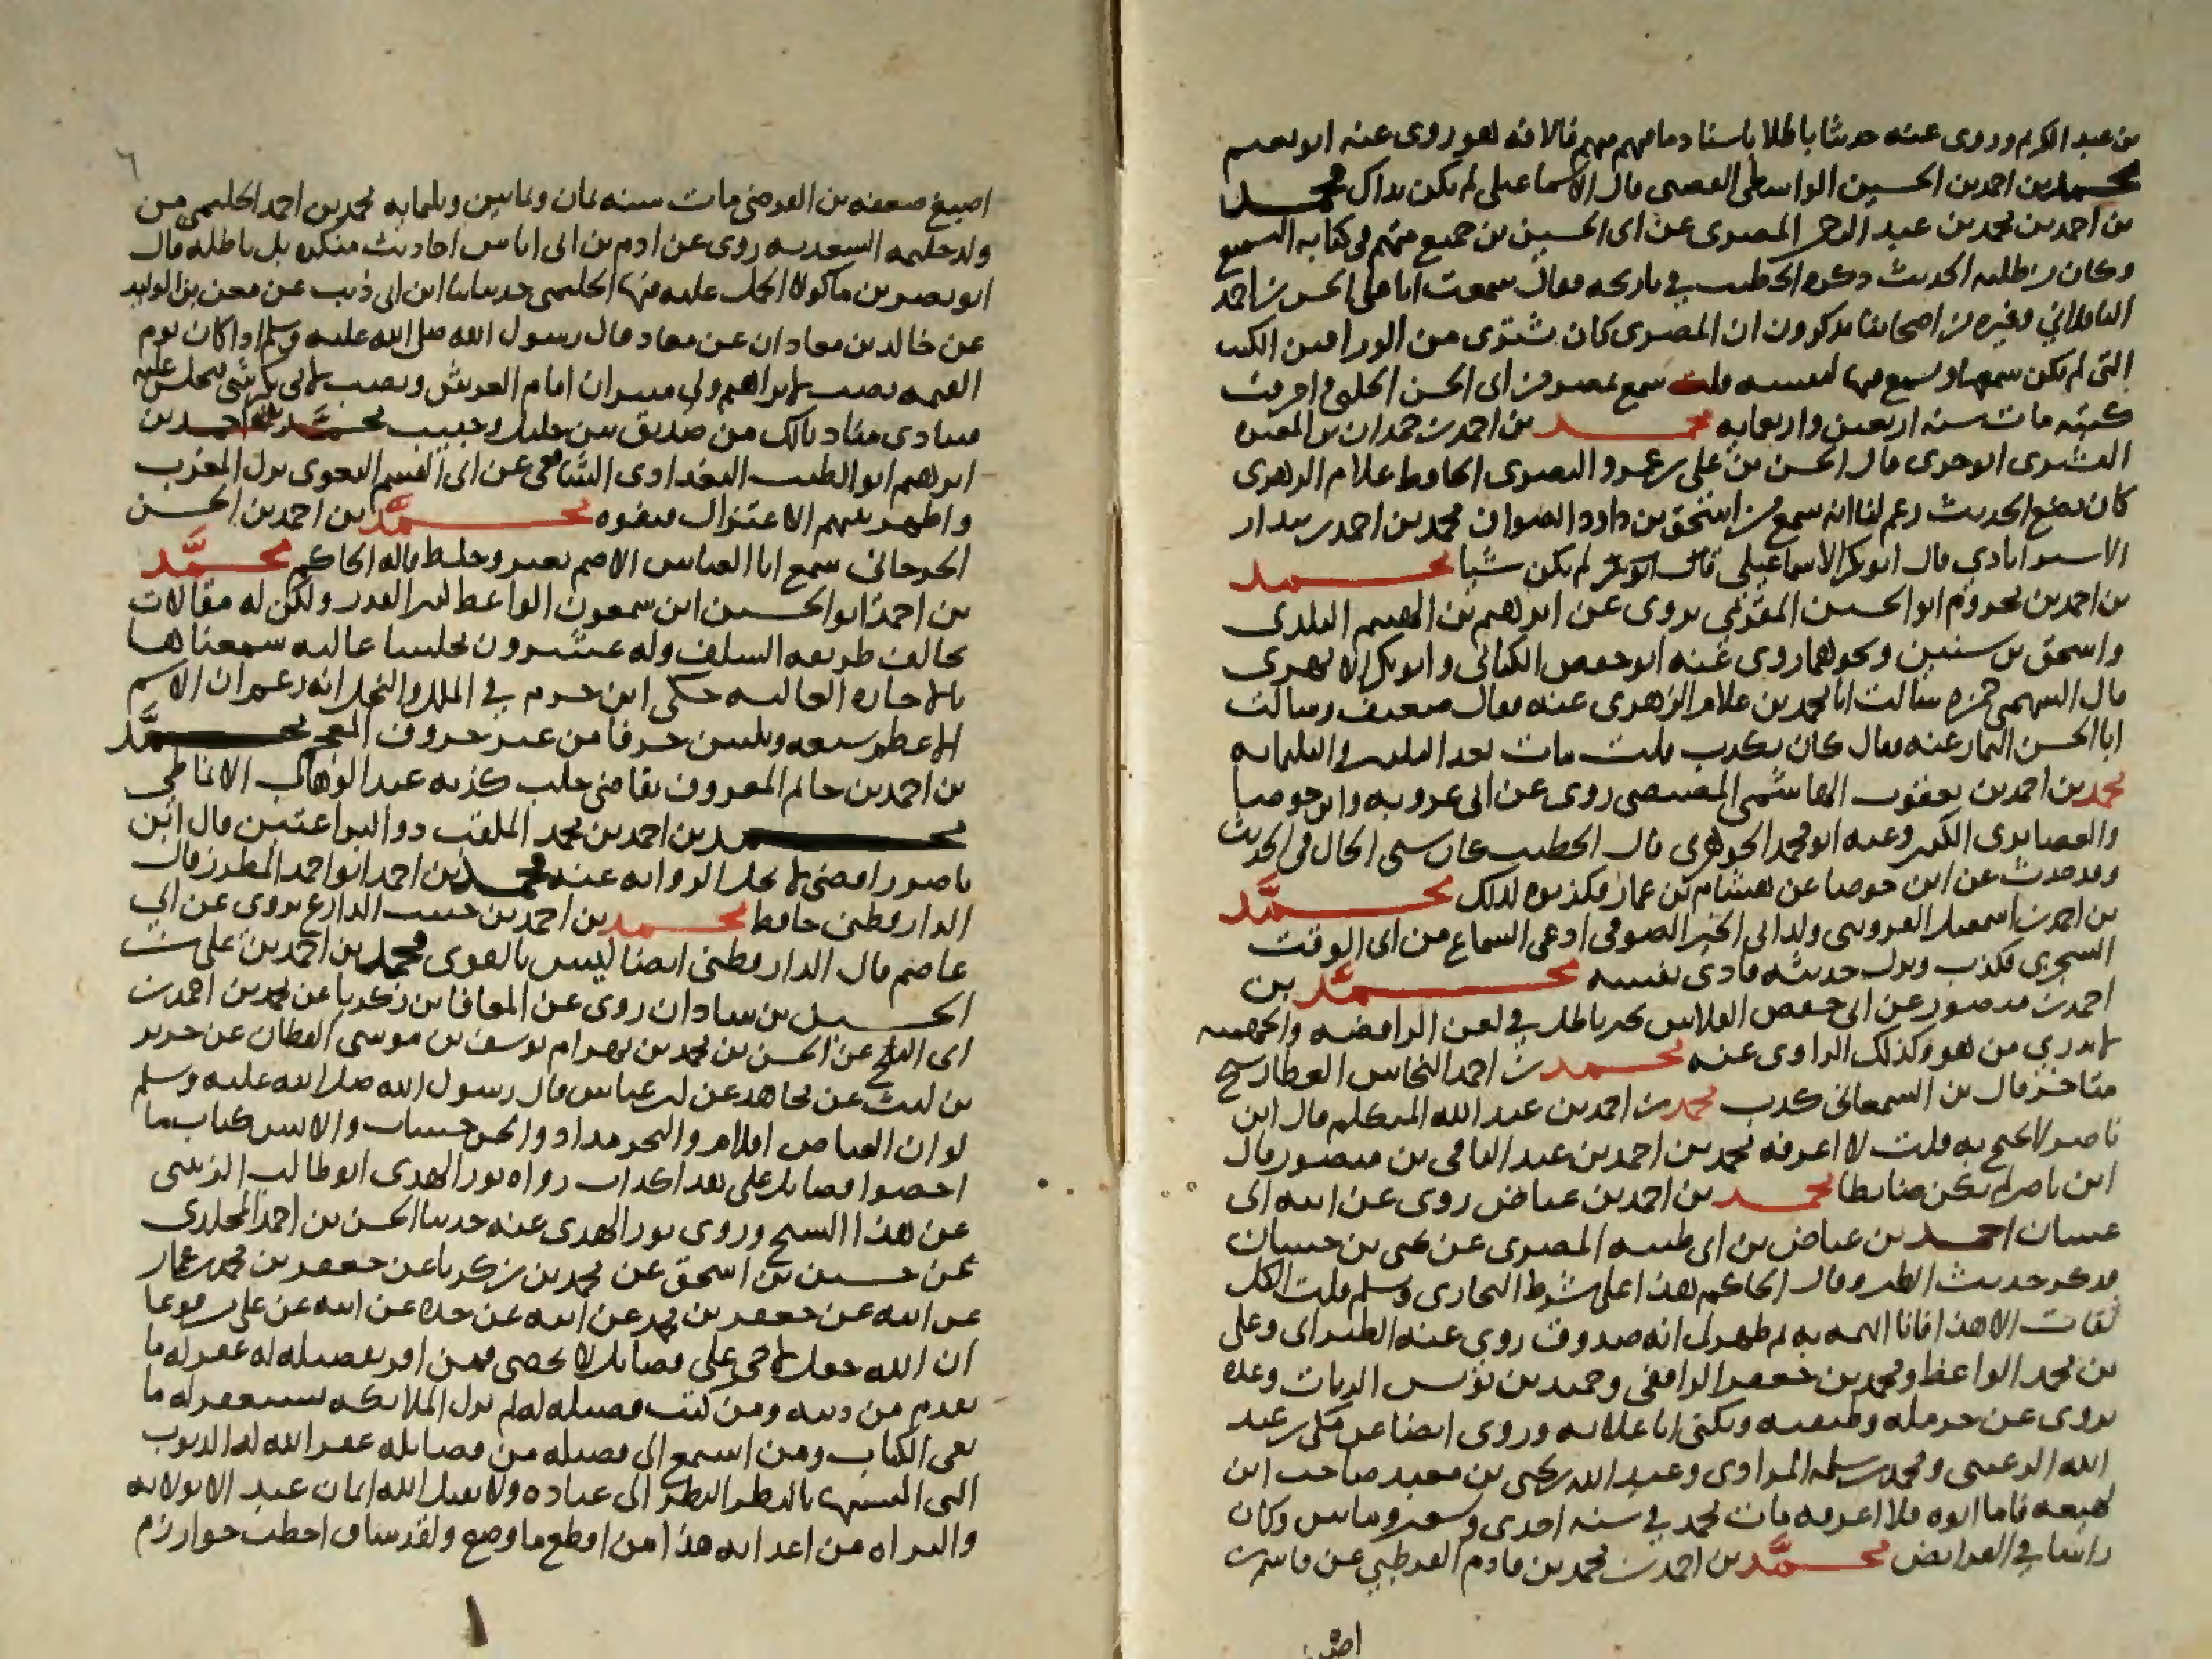 بن عبد الكريم وروى عنه حديثا باطلا باسناد ما فيهم متهم فالافة هو روى عنه ابو نعيم
محمد بن احمد بن الحسين الواسطي قال الاسماعيلي لم يكن بذاك محمد
بن احمد بن محمد بن عبد الرحمن المصري عن ابي الحسين بن جميع متهم في كتابه السمع
وكان من طلبه الحديث ذكره الخطيب في تاريخه فقال سمعت ابا علي الحسن بن احمد
الباقلاني وغيره من اصحابنا يذكرون ان المصري كان يشترى من الوراقين الكتب
التي لم يكن سمعها ويسمع فيها لنفسه قلت سمع بمصر من ابي الحسن الحلبي واحرقت
كتبه مات سنه اربعين واربعمايه محمد بن احمد بن حمدان بن المغيره
القشيري قال الحسن بن علي بن عمرو البصري الحافظ غلام الزهري
كان يضع الحديث زعم لنا انه سمع من اسحق بن داود الصواف محمد بن احمد بن بندار
الاسترابادي قال ابو بكر الاسماعيلي لم يكن شيا محمد
بن احمد بن مخزوم ابو الحسين المقري يروى عن ابرهيم بن الهيثم البلدي
واسحق بن سنين ونحوهما روى عنه ابو حفص الكتاني وابو بكر الابهري
قال السهمي حمزه سالت ابا محمد بن غلام الزهري عنه فقال ضعيف وسالت
ابا الحسن التمار عنه فقال كان يكذب قلت مات بعد الثلثين والثلثمايه
محمد بن احمد بن يعقوب الهاشمي المصيصي روى عن ابي عروبه وابن جوصا
والكبير وعنه ابو محمد الجوهري قال الخطيب كان سيئ الحال في الحديث
وقد حدث عن ابن جوصا عن هشام بن عمار فكذبوه لذلك محمد
بن احمد بن اسمعيل القزويني ولد ابي الخير الصوفي ادعى السماع من ابي الوقت
السجزي فكذب وترك حديثه فاذى نفسه محمد بن
احمد بن منصور عن ابي حفص الفلاس بخبر باطل في لعن الرافضه والجهميه
لا يدري من هو وكذلك الراوى عنه محمد بن احمد النحاس العطار شيخ
متاخر قال بن السمعاني كذب محمد بن احمد بن عبد الله المتكلم قال ابن
ناصر لا يحتج به قلت لا اعرفه محمد بن احمد بن عبد الباقي بن منصور قال
ابن ناصر لم يكن ضابطا محمد بن احمد بن عياض روى عن ابيه ابي
غسان احمد بن عياض بن ابي طيبه المصري عن يحيى بن حسان
فذكر حديث الطير وقال الحاكم هذا على شرط البخاري ومسلم قلت الكل
ثقات الا هذا فانا اتهمه به ثم ظهر لي انه صدوق روى عنه الطبراني وعلي
بن محمد الواعظ ومحمد بن جعفر الرافقي وحميد بن يونس الزيات وعده
يروى عن حرمله وطبقته ويكنى ابا علاثه وروى ايضا عن مكي بن عبد
الله الرعيني ومحمد بن سلمه المرادي وعبد الله بن يحيى بن معبد صاحب ابن
لهيعه فاما ابوه فلا اعرفه مات محمد في سنه احدى وتسعين ومايتين وكان
راسا في الفرايض محمد بن احمد بن محمد بن قادم القرطبي عن قاسم بن
اصبغ
٦
اصبغ ضعفه بن الفرضي مات سنه ثمان وثمانين وثلثمايه محمد بن احمد الحليمي من
ولد حليمه السعديه روى عن ادم بن ابي اياس احاديث منكره بل باطله قال
ابو نصر بن ماكولا الحمل عليه فيها الحليمي حدثنا ابن ابي ذيب عن معن بن الوليد
عن خالد بن معدان عن معاذ قال رسول الله صلى الله عليه وسلم اذا كان يوم
القيمه نصب لابراهيم ولي منبران امام العرش ونصب لابي بكر كرسي فيجلس عليه
فينادى مناد يالك من صديق بين خليل وحبيب محمد بن احمد بن
ابرهيم ابو الطيب البغدادي الشافعي عن ابي القسم البغوي نزل المغرب
واظهر بينهم الاعتزال فنفوه محمد بن احمد بن الحسن
الجرجاني سمع ابا العباس الاصم تغير وخلط قاله الحاكم محمد
بن احمد ابو الحسين ابن سمعون الواعظ كبير القدر ولكن له مقالات
تخالف طريقه السلف وله عشرون مجلسا عاليه سمعناها
بالاجازه العاليه حكى ابن حزم في الملل والنحل انه زعم ان الاسم
الاعظم سبعه وثلثين حرفا من غير حروف المعجم محمد
بن احمد بن حاتم المعروف بقاضي حلب كذبه عبد الوهاب الانماطي
محمد بن احمد بن محمد الملقب ذو البراعتين قال ابن
ناصر رافضي لا تحل الروايه عنه محمد بن احمد ابو احمد المطرز قال
الدارقطني حافظ محمد بن احمد بن حبيب الذارع يروى عن ابي
عاصم قال الدارقطني ايضا ليس بالقوى محمد بن احمد بن علي بن
الحسين بن شاذان روى عن المعافا بن زكريا عن محمد بن احمد بن
ابي الثلج عن الحسن بن محمد بن بهرام يوسف بن موسى القطان عن جرير
بن ليث عن مجاهد عن ابن عباس قال رسول الله صلى الله عليه وسلم
لو ان الغياض اقلام والبحر مداد والجن حساب والانس كتاب ما
احصوا فضايل علي هذا كذاب رواه نور الهدى ابو طالب الزينبي
عن هذا الشيخ وروى نور الهدى عنه حدثنا الحسن بن احمد المخلدي
عن حسين بن اسحق عن محمد بن زكريا عن جعفر بن محمد بن عمار
عن ابيه عن جعفر بن محمد عن ابيه عن جده عن ابيه عن علي مرفوعا
ان الله جعل لاخي علي فضايل لا تحصى فمن اقر بفضيله له غفر له ما
تقدم من ذنبه ومن كتب فضيله له لم تزل الملائكه تستغفر له ما
بقى الكتاب ومن استمع الى فضيله من فضايله غفر الله له الذنوب
التي اكتسبها بالنظر النظر الى عباده ولا يقبل الله ايمان عبد الا بولايه
والبراه من اعدايه هذا من افظع ما وضع ولقد ساق اخطب خوارزم